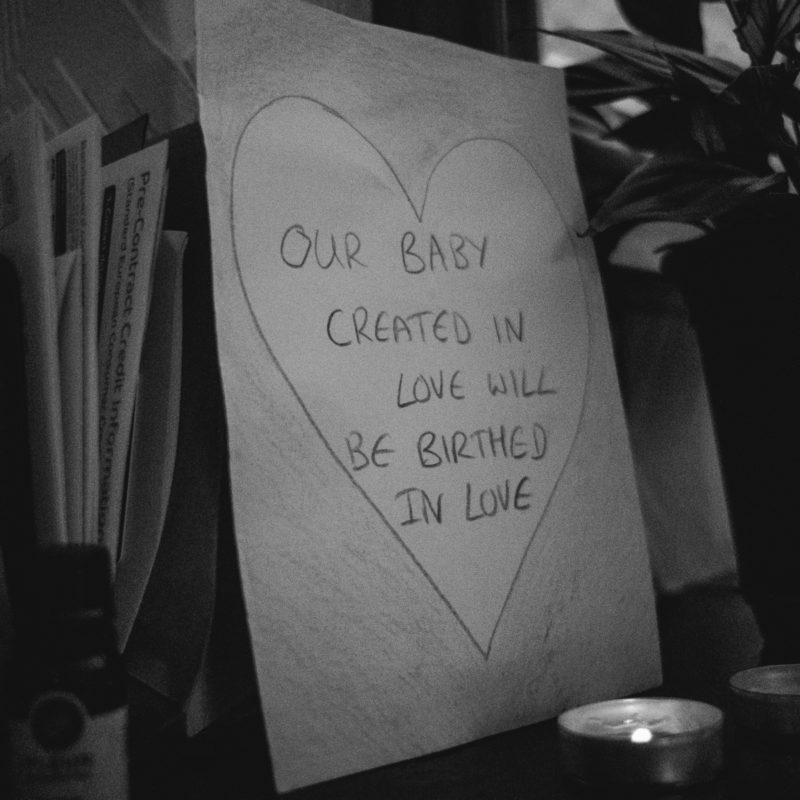 OUR BABY
CREATED IN
LOVE WILL
BE BIRTHED
IN LOVE
Pre-Contract Credit Information
(Standard European Consumer